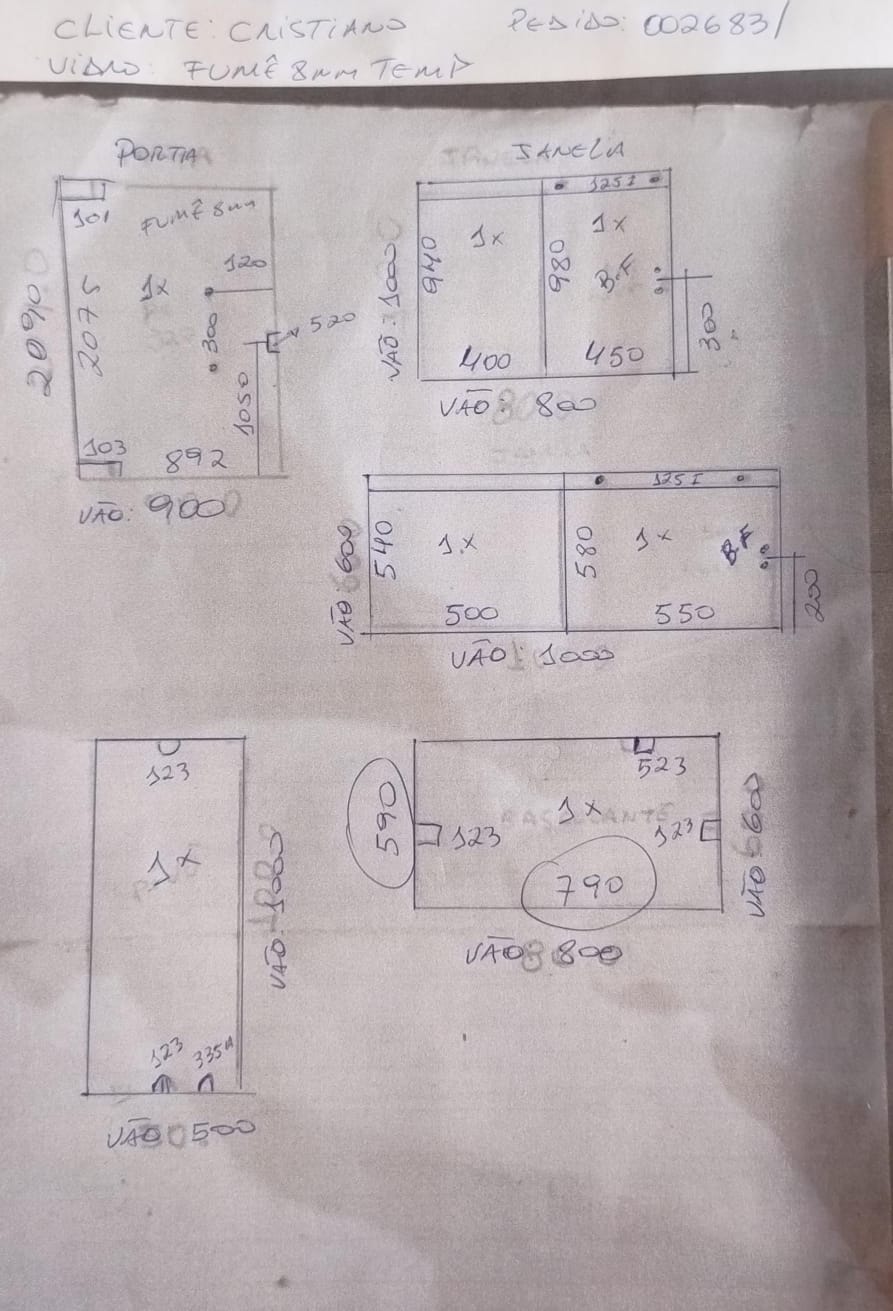 CLIENTE: CRISTIANO PEDIDO: 002683/
VIDRO: FUMÊ 8MM TEMP
PORTA
101
FUMÊ 8mm
2090
2075
1x
120
300
520
1050
103
892
VÃO: 900
JANELA
125I
VÃO: 1000
940
1x
980
1x
B.F
300
400
450
VÃO: 800
125I
VÃO: 600
540
1x
580
1x
B.F
200
500
550
VÃO: 1000
123
1x
VÃO: 1000
123
335A
VÃO 500
523
590
1x
123
123
790
VÃO 600
VÃO 800